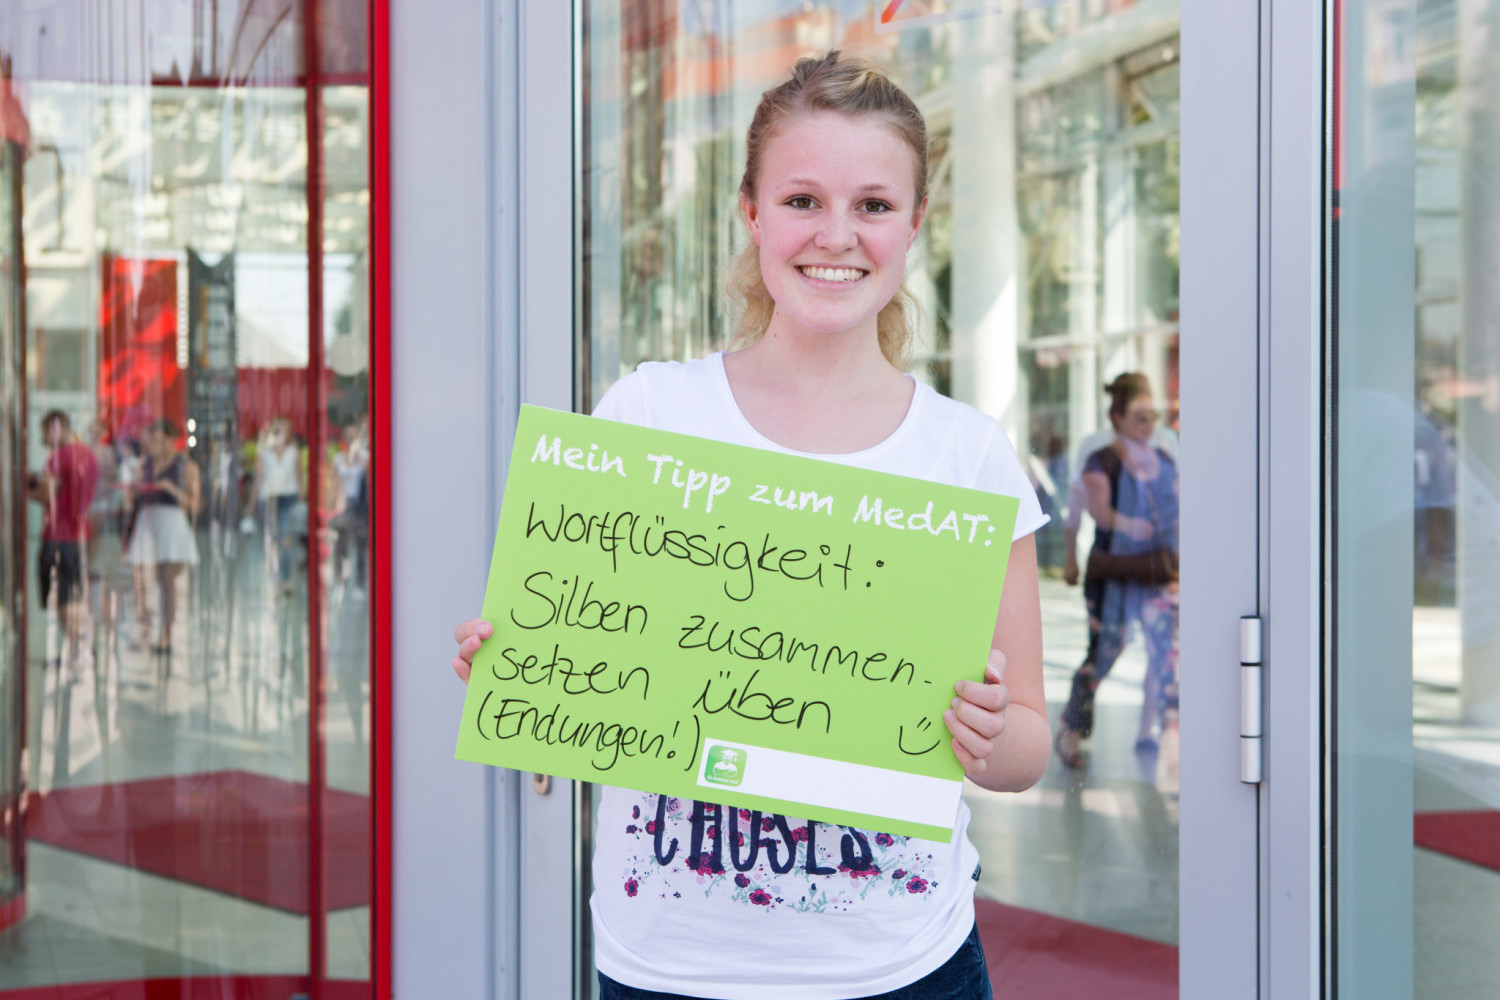 Mein Tipp zum MedAT:
Wortflüssigkeit:
Silben zusammen-
setzen üben
(Endungen!)
CHOSES